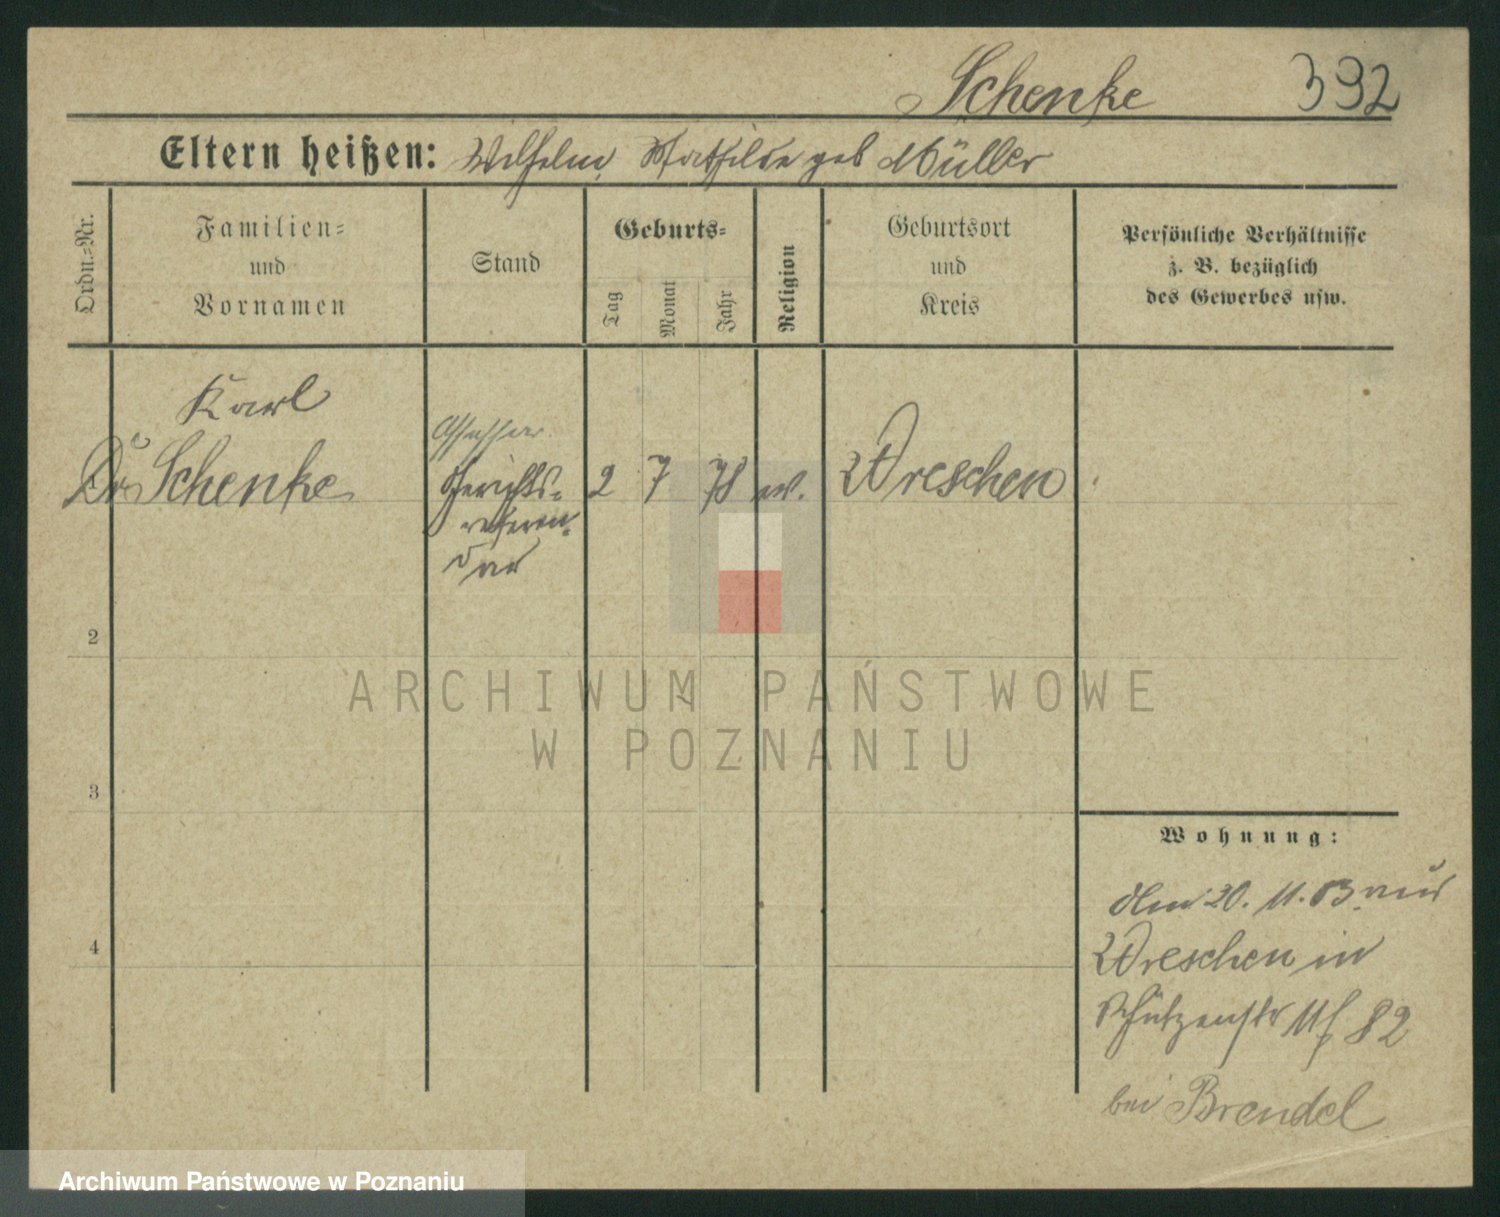 Schenke 392
Eltern heißen: Wilhelm, Mathilde geb Müller
Ordn.=Nr.
Familien=
und
Vornamen
Stand
Geburts=
Tag
Monat
Jahr
Religion
Geburtsort
und
Kreis
Persönliche Verhältnisse
z. B. bezüglich
des Gewerbes usw.
Karl
Dr Schenke
Assessor
Gerichts-
referen-
dar
2 7 78 ev. Wreschen
2
3
4
Wohnung:
Am 20. 11. 03 aus
Wreschen in
Schützenstr 82
bei Brendel
ARCHIWUM PAŃSTWOWE
W POZNANIU
Archiwum Państwowe w Poznaniu